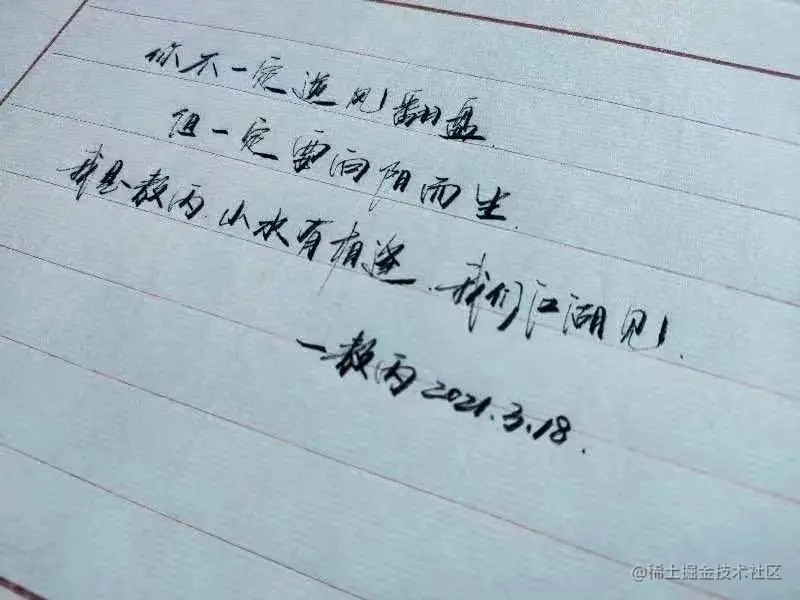 你不一定逆风翻盘
但一定要向阳而生.
我是敖丙.山水有相逢.我们江湖见.
一敖丙 2021.3.18.
@稀土掘金技术社区